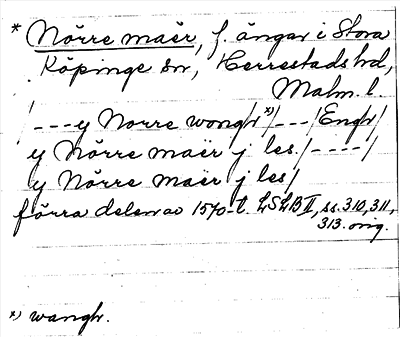 * Nörre maër, f. ängar i Stora
Köpinge sn, Herrestads hd,
Malm. l.
/---y Norre wongr *)/---/Engr/
y Nörre maër j les./----/
y Nörre maër j les/
förra delen av 1570-t. LSLB II, ss. 310, 311,
313. orig.
*) wangr.